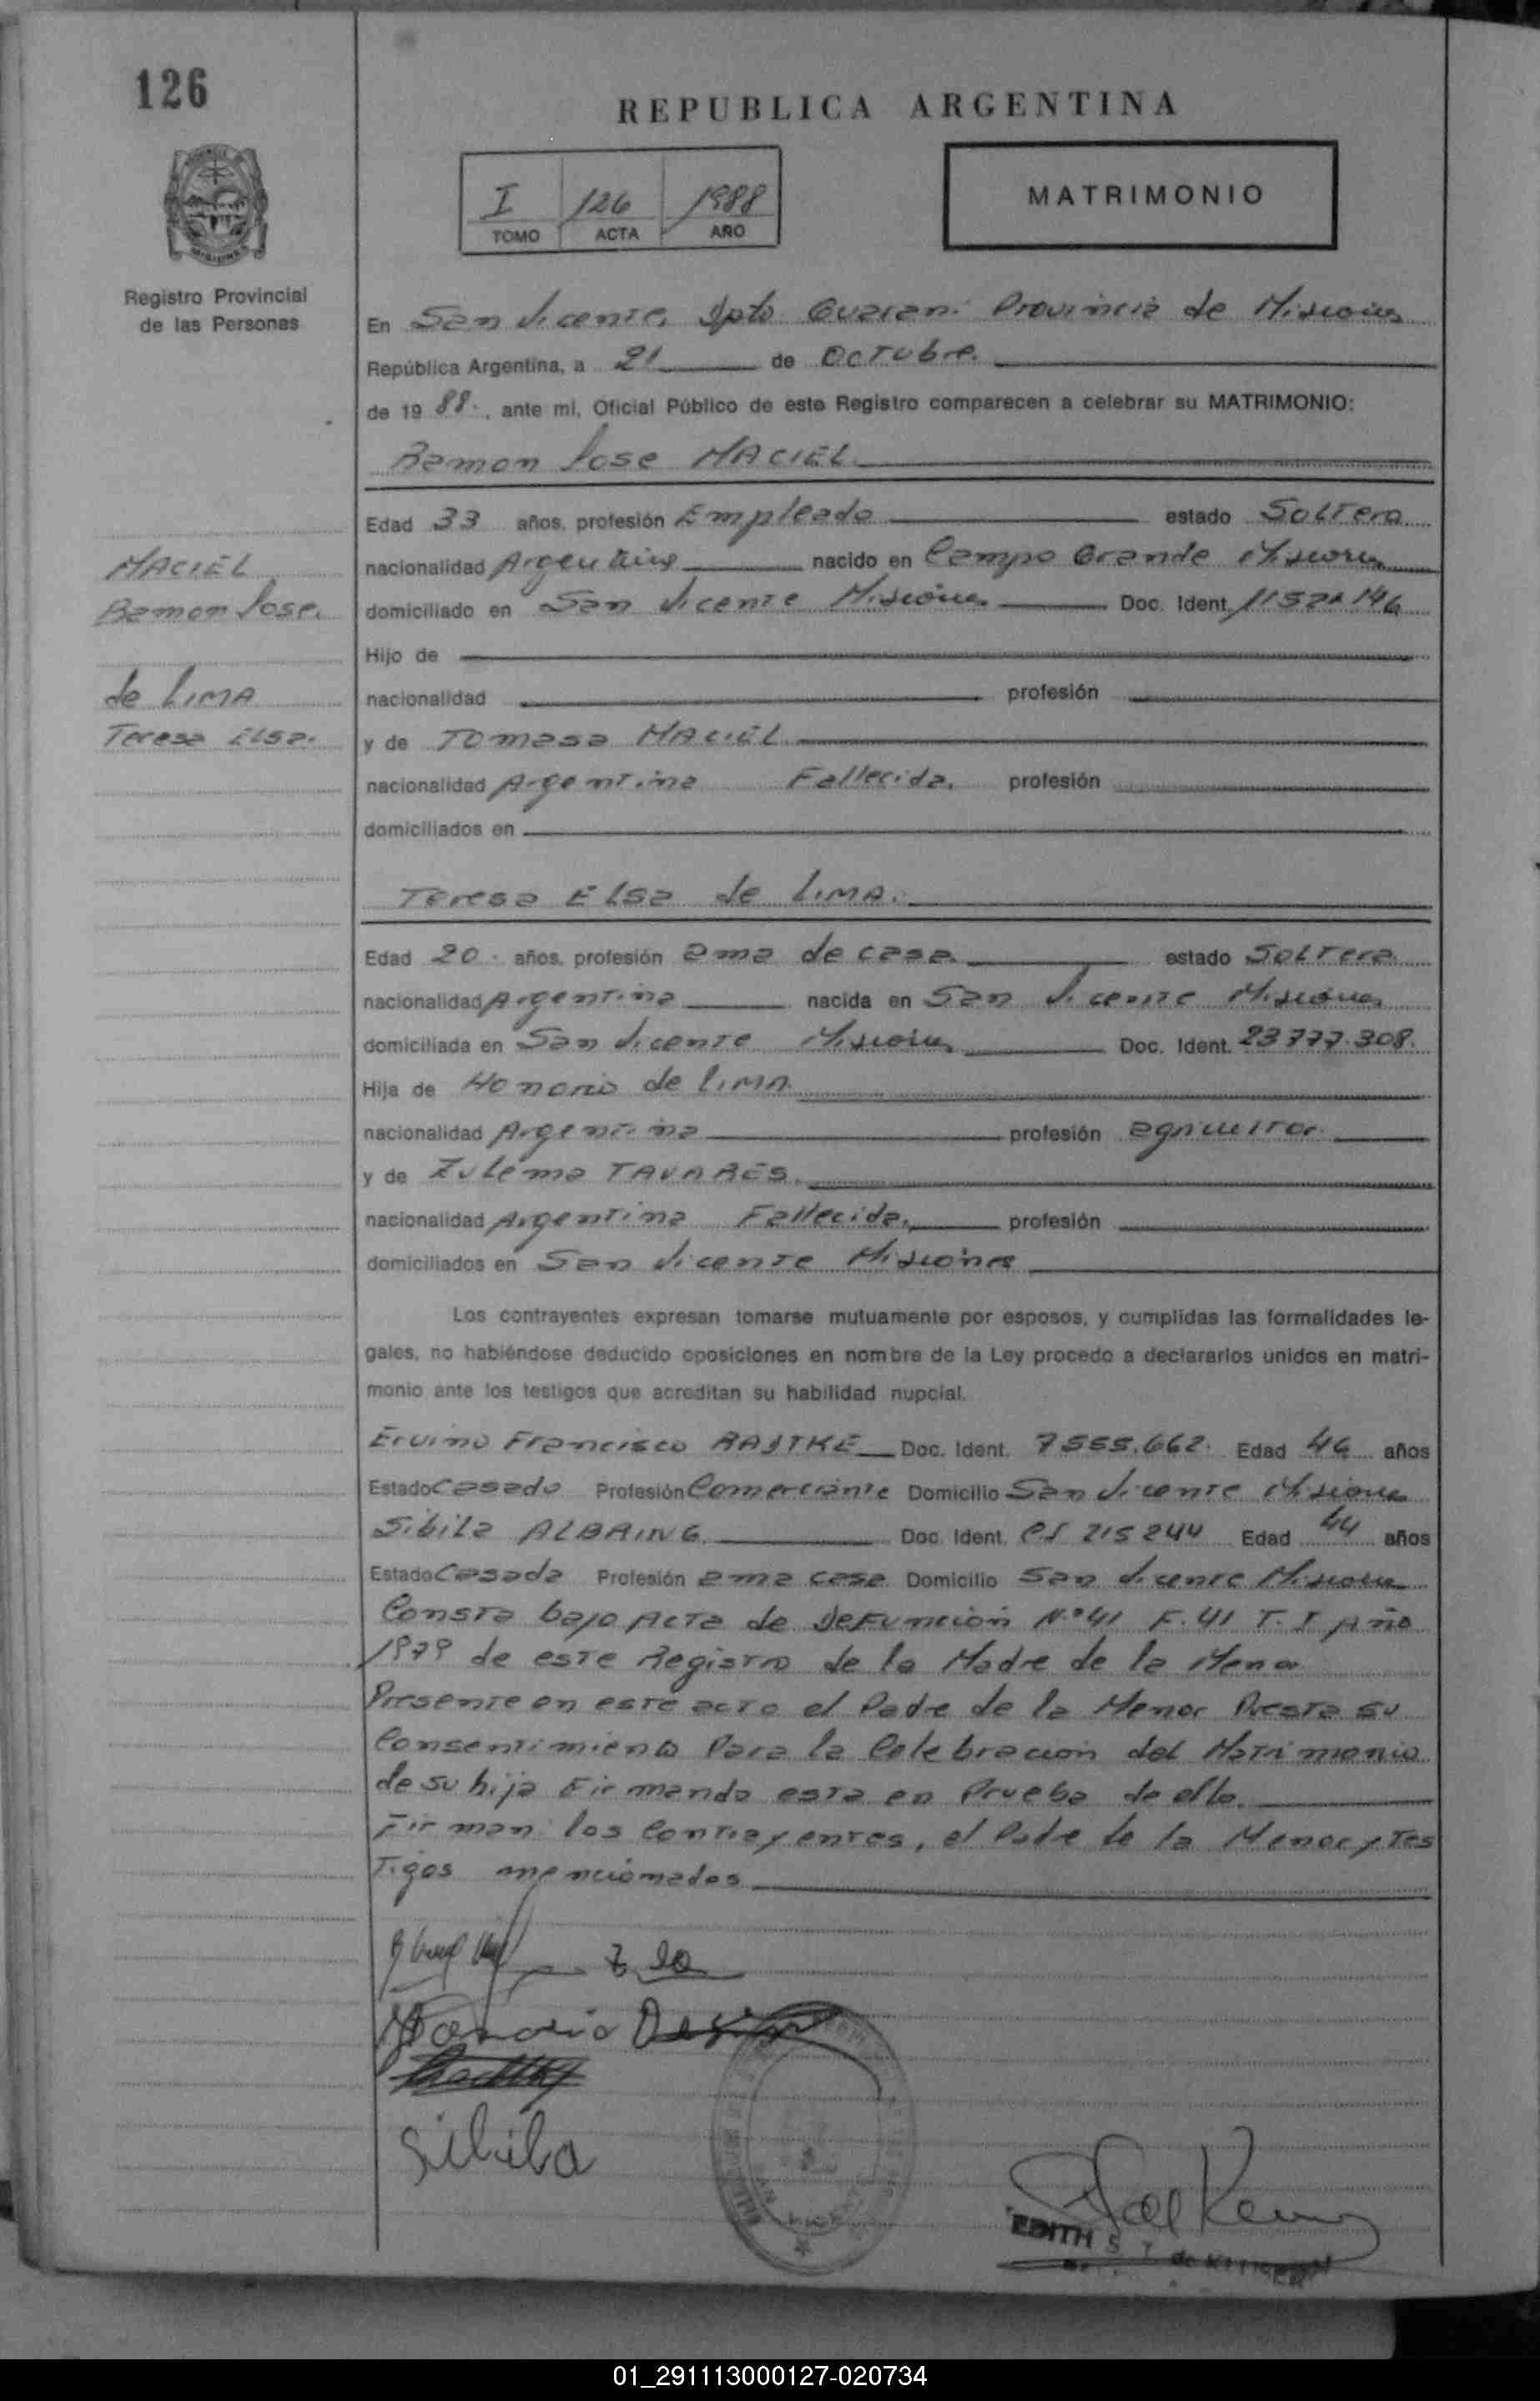 126
REPUBLICA ARGENTINA
I 126 1988
TOMO ACTA AÑO
MATRIMONIO
Registro Provincial
de las Personas
En San Vicente, Dpto Guarani Provincia de Misiones
República Argentina, a 21 de Octubre.
de 19 88., ante mi, Oficial Público de este Registro comparecen a celebrar su MATRIMONIO:
Ramon Jose MACIEL
Edad 33 años, profesión Empleado estado Soltero
nacionalidad Argentina nacido en Campo Grande Misiones
domiciliado en San Vicente Misiones Doc. Ident.
Hijo de
nacionalidad profesión
y de Tomasa MACIEL
nacionalidad Argentina Fallecida. profesión
domiciliados en
MACIEL
Ramon Jose.
de LIMA
Teresa Elsa.
Teresa Elsa de LIMA.
Edad 20. años, profesión ama de casa estado Soltera
nacionalidad Argentina nacida en San Vicente Misiones
domiciliada en San Vicente Misiones Doc. Ident. 23777.308.
Hija de Honorio de LIMA
nacionalidad Argentina profesión agricultor.
y de Zulema TAVARES.
nacionalidad Argentina Fallecida, profesión
domiciliados en San Vicente Misiones
Los contrayentes expresan tomarse mutuamente por esposos, y cumplidas las formalidades le-
gales, no habiéndose deducido oposiciones en nombre de la Ley procedo a declararlos unidos en matri-
monio ante los testigos que acreditan su habilidad nupcial.
Ervino Francisco Doc. Ident. 7555.662. Edad 46 años
Estado Casado Profesión Comerciante Domicilio San Vicente Misiones
Sibila ALBAING Doc. Ident. 215244 Edad 44 años
Estado Casada Profesión ama casa Domicilio San Vicente Misiones
Consta bajo Acta de Defunción N.º 41 F. 41 T. I Año
1979 de este Registro de la Madre de la Menor
Presente en este acto el Padre de la Menor Presta su
Consentimiento Para la Celebracion del Matrimonio
de su hija Firmando esta en Prueba de ello.
Firman los Contrayentes, el Padre de la Menor y Tes
Tigos mencionados
Honorio
Sibila
EDITH S. T. de
01_291113000127-020734